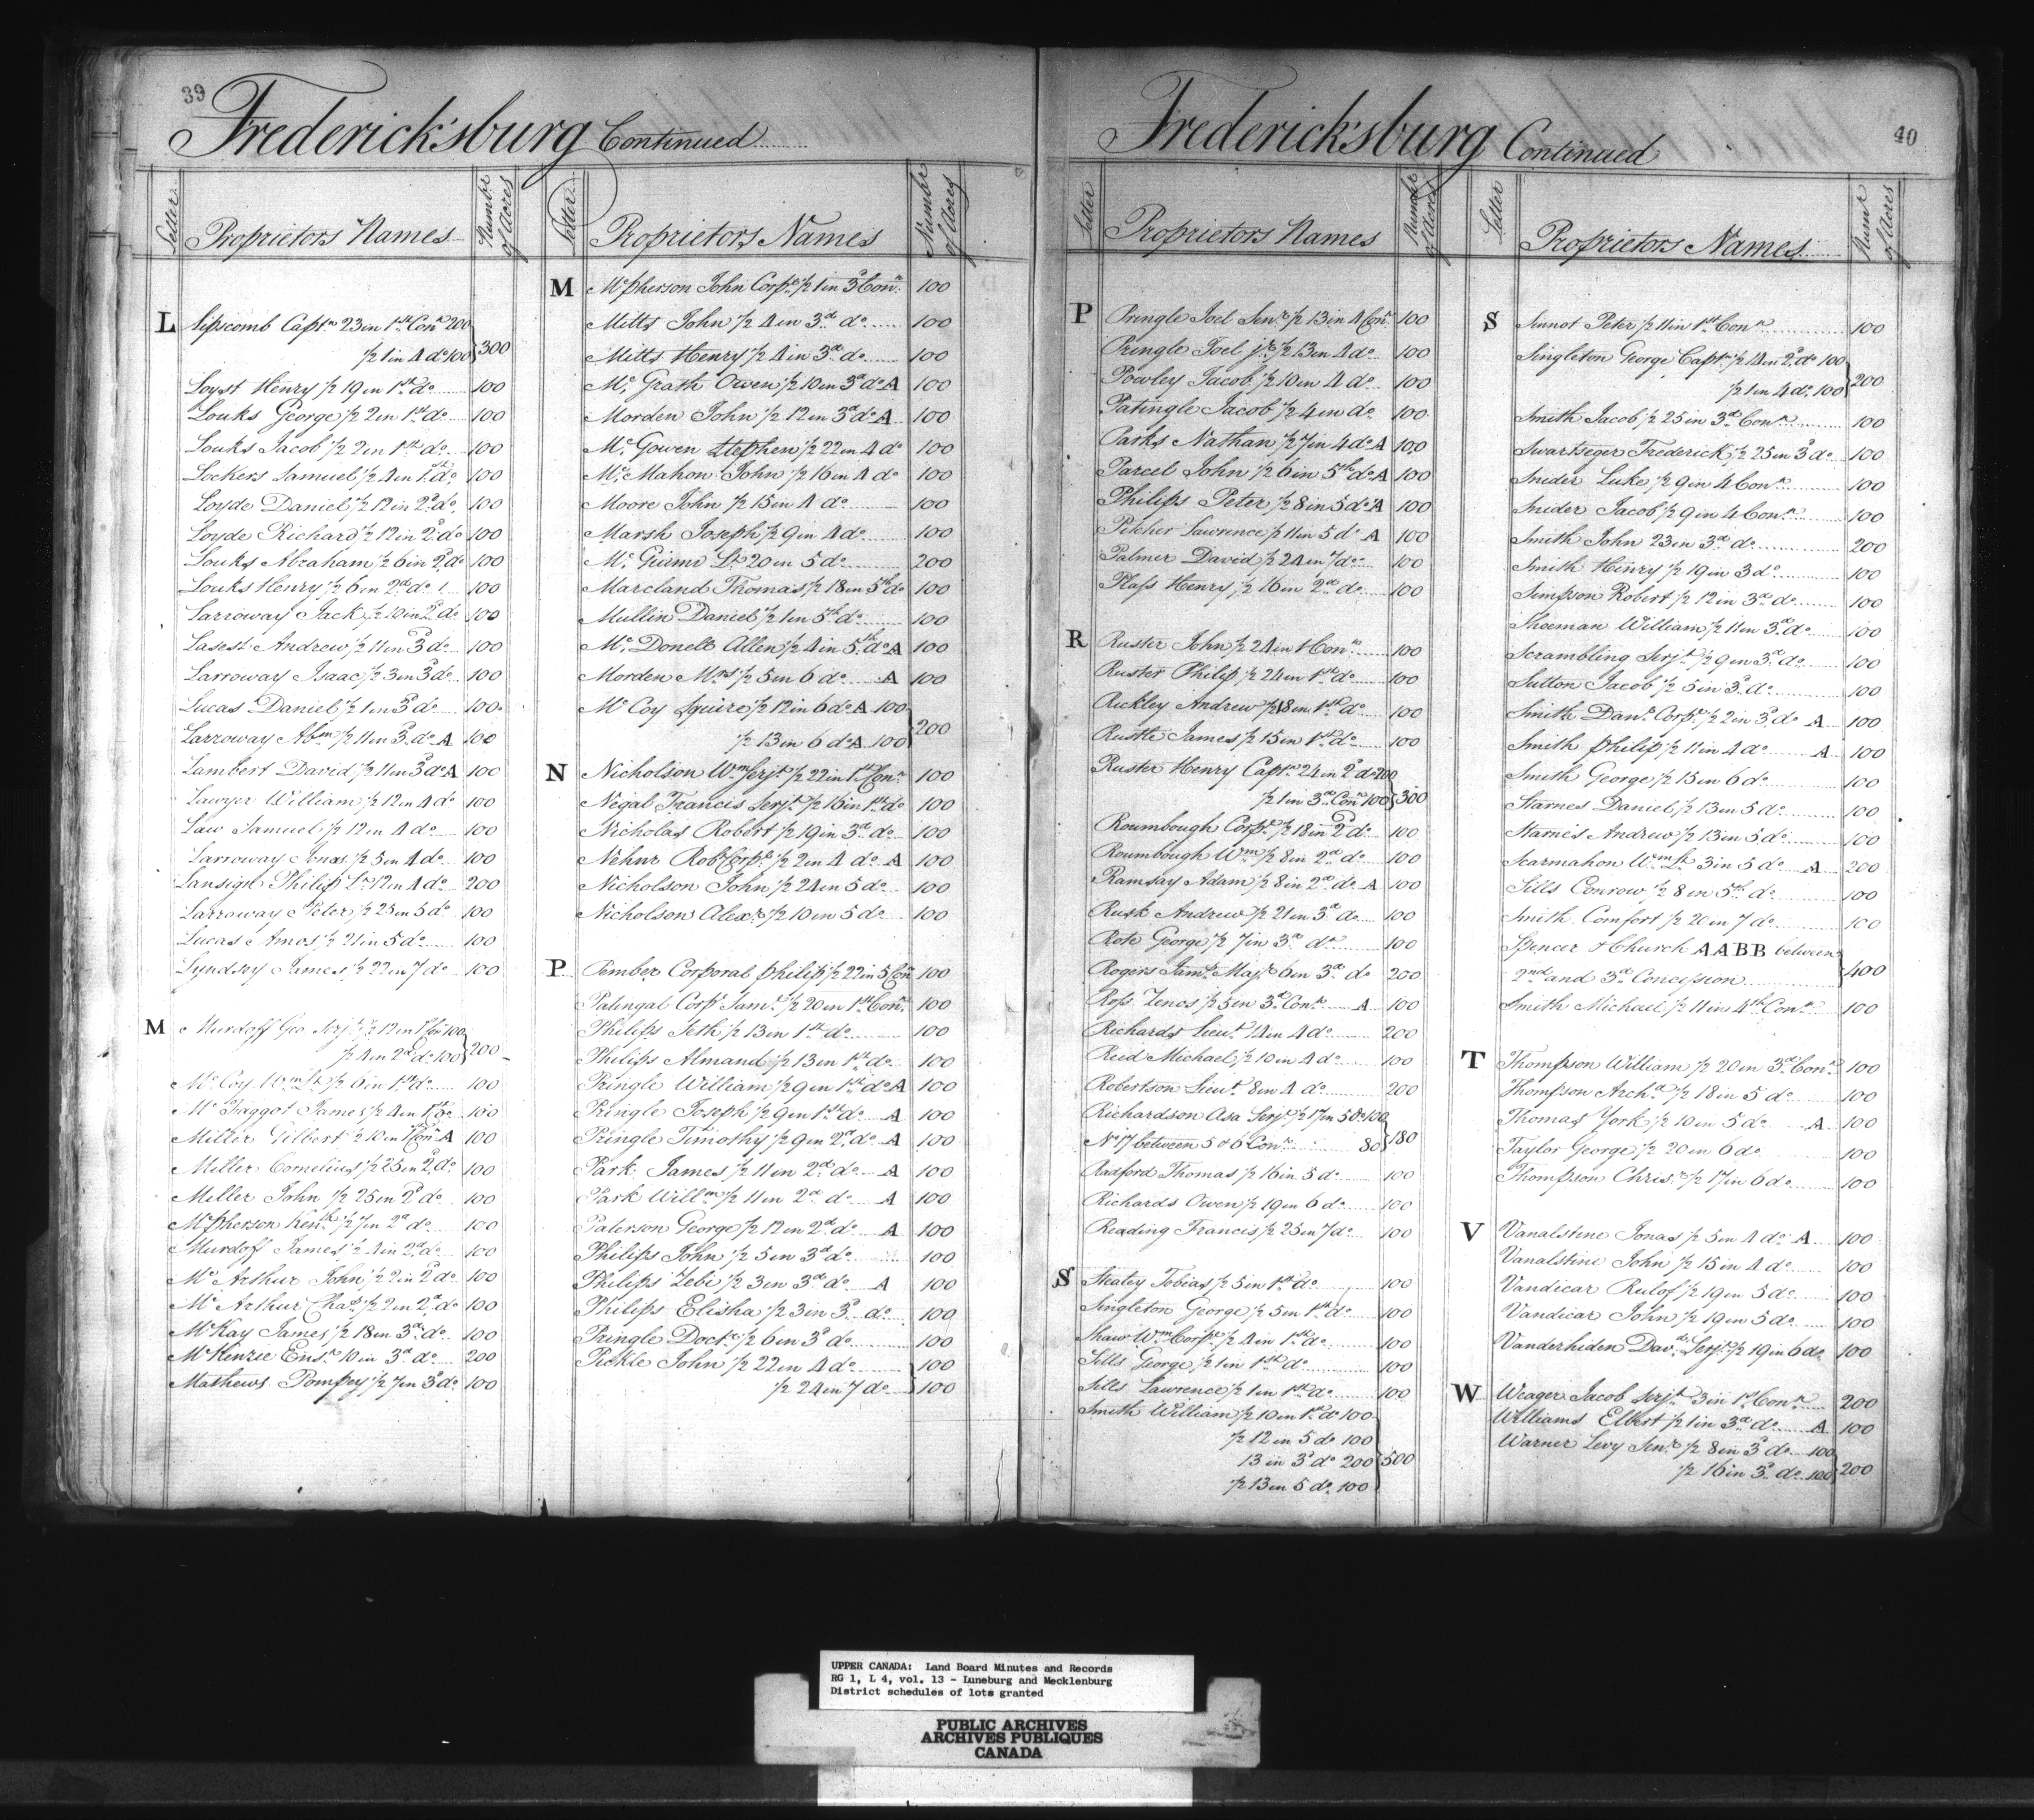 39
Fredericksburg Continued
Letter
Proprietors Names
Number of Acres
L
Lipscomb Captn 23 in 1st Conn 200
1/2 1 in 4 do 100 } 300
Loyst Henry 1/2 19 in 1st do 100
Louks George 1/2 2 in 1st do 100
Louks Jacob 1/2 2 in 1st do 100
Lockers Samuel 1/2 4 in 1st do 100
Loyde Daniel 1/2 12 in 2d do 100
Loyde Richard 1/2 12 in 2d do 100
Louks Abraham 1/2 6 in 2d do 100
Louks Henry 1/2 6 in 2d do 100
Larroway Jack 1/2 10 in 2d do 100
Lasest Andrew 1/2 11 in 3d do 100
Larroway Isaac 1/2 3 in 3d do 100
Lucas Daniel 1/2 1 in 3d do 100
Larroway Abm 1/2 11 in 3d do A 100
Lambert David 1/2 11 in 3d do A 100
Lawyer William 1/2 12 in 4 do 100
Law Samuel 1/2 12 in 4 do 100
Larroway Jonas 1/2 5 in 4 do 100
Lansigil Philip Lt 12 in 4 do 200
Larroway Peter 1/2 25 in 5 do 100
Lucas Amos 1/2 21 in 5 do 100
Lyndsey James 1/2 22 in 7 do 100
M
Murdoff Geo Serjt 1/2 12 in 1st Con 100
1/2 4 in 2d do 100 } 200
Mc Coy Wm Lt 1/2 6 in 1st do 100
Mc Taggot James 1/2 4 in 1st do 100
Miller Gilbert 1/2 10 in 1st Con A 100
Miller Cornelius 1/2 25 in 2d do 100
Miller John 1/2 25 in 2d do 100
Mcpherson Kenth 1/2 7 in 2d do 100
Murdoff James 1/2 4 in 2d do 100
Mc Arthur John 1/2 2 in 2d do 100
Mc Arthur Chas 1/2 2 in 2d do 100
McKay James 1/2 18 in 3d do 100
McKenzie Ensn 10 in 3d do 200
Mathews Pompey 1/2 7 in 3d do 100
Letter
Proprietors Names
Number of Acres
M
Mcpherson John Corpl 1/2 1 in 3d Conn 100
Mitts John 1/2 4 in 3d do 100
Mitts Henry 1/2 4 in 3d do 100
Mc Grath Owen 1/2 10 in 3d do A 100
Morden John 1/2 12 in 3d do A 100
Mc Gowen Stephen 1/2 22 in 4 do 100
Mc Mahon John 1/2 16 in 4 do 100
Moore John 1/2 15 in 4 do 100
Marsh Joseph 1/2 9 in 4 do 100
Mc Guinn Lt 20 in 5 do 200
Marcland Thomas 1/2 18 in 5th do 100
Mullin Daniel 1/2 1 in 5th do 100
Mc Donell Allen 1/2 4 in 5th do A 100
Morden Mrs 1/2 5 in 6 do A 100
Mc Coy Squire 1/2 12 in 6 do A 100
1/2 13 in 6 do A 100 } 200
N
Nicholson Wm Serjt 1/2 22 in 1st Conn 100
Negal Francis Serjt 1/2 16 in 1st do 100
Nicholas Robert 1/2 19 in 3d do 100
Nehur Robt Corpl 1/2 2 in 4 do A 100
Nicholson John 1/2 24 in 5 do 100
Nicholson Alexr 1/2 10 in 5 do 100
P
Pember Corporal philip 1/2 22 in 5 Con 100
Patingal Corpl Saml 1/2 20 in 1st Conn 100
Philips Seth 1/2 13 in 1st do 100
Philips Almand 1/2 13 in 1st do 100
Pringle William 1/2 9 in 1st do A 100
Pringle Joseph 1/2 9 in 1st do A 100
Pringle Timothy 1/2 9 in 2d do A 100
Park James 1/2 11 in 2d do A 100
Park Willm 1/2 11 in 2d do A 100
Paterson George 1/2 12 in 2d do A 100
Philips John 1/2 5 in 3d do 100
Philips Zebi 1/2 3 in 3d do A 100
Philips Elisha 1/2 3 in 3d do 100
Pringle Doctr 1/2 6 in 3d do 100
Pickle John 1/2 22 in 4 do 100
1/2 24 in 7 do 100
40
Fredericksburg Continued
Letter
Proprietors Names
Number of Acres
P
Pringle Joel Senr 1/2 13 in 4 Conn 100
Pringle Joel jr 1/2 13 in 4 do 100
Powley Jacob 1/2 10 in 4 do 100
Patingle Jacob 1/2 4 in do 100
Parks Nathan 1/2 7 in 4 do A 100
Parcel John 1/2 6 in 5th do A 100
Philips Peter 1/2 8 in 5 do A 100
Pilcher Lawrence 1/2 11 in 5 do A 100
Palmer David 1/2 24 in 7 do 100
Plass Henry 1/2 16 in 2d do 100
R
Ruster John 1/2 24 in 1 Conn 100
Ruster Philip 1/2 24 in 1st do 100
Rickley Andrew 1/2 18 in 1st do 100
Rustle James 1/2 15 in 1st do 100
Ruster Henry Captn 24 in 2d do 200
1/2 1 in 3d Conn 100 } 300
Roumbough Corpl 1/2 18 in 2d do 100
Roumbough Wm 1/2 8 in 2d do 100
Ramsay Adam 1/2 8 in 2d do A 100
Rusk Andrew 1/2 21 in 3d do 100
Rote George 1/2 7 in 3d do 100
Rogers Jams Majr 6 in 3d do 200
Ross Zenos 1/2 5 in 3d Conn A 100
Richards Lieut 14 in 4 do 200
Reed Michael 1/2 10 in 4 do 100
Robertson Lieut 8 in 4 do 200
Richardson Asa Serjt 1/2 17 in 5 do 100
No 17 between 5 & 6 Conn 80 } 180
Radford Thomas 1/2 16 in 5 do 100
Richards Owen 1/2 19 in 6 do 100
Reading Francis 1/2 25 in 7 do 100
S
Stealey Tobias 1/2 5 in 1st do 100
Singleton George 1/2 5 in 1st do 100
Shaw Wm Corpl 1/2 4 in 1st do 100
Sills George 1/2 1 in 1st do 100
Sills Lawrence 1/2 1 in 1st do 100
Smith William 1/2 10 in 1st do 100
1/2 12 in 5 do 100
13 in 3d do 200 } 500
1/2 13 in 5 do 100
Letter
Proprietors Names
Numr of Acres
S
Sinnot Peter 1/2 11 in 1st Conn 100
Singleton George Captn 1/2 14 in 2d do 100
1/2 1 in 4 do 100 } 200
Smith Jacob 1/2 25 in 3d Conn 100
Swartseger Frederick 1/2 25 in 3 do 100
Snider Luke 1/2 9 in 4 Conn 100
Snider Jacob 1/2 9 in 4 Conn 100
Smith John 23 in 3d do 200
Smith Henry 1/2 19 in 3 do 100
Simpson Robert 1/2 12 in 3d do 100
Shoeman William 1/2 11 in 3d do 100
Scrambling Serjt 1/2 9 in 3d do 100
Sutton Jacob 1/2 5 in 3d do 100
Smith Danl Corpl 1/2 2 in 3d do A 100
Smith philip 1/2 11 in 4 do A 100
Smith George 1/2 15 in 6 do 100
Starnes Daniel 1/2 13 in 5 do 100
Starnes Andrew 1/2 13 in 5 do 100
Scarmahon Wm Lt 3 in 5 do A 200
Sills Conrow 1/2 8 in 5th do 100
Smith Comfort 1/2 20 in 7 do 100
Spencer & Church AABB between
2nd and 3d Concession } 400
Smith Michael 1/2 11 in 4th Conn 100
T
Thompson William 1/2 20 in 3d Conn 100
Thompson Archd 1/2 18 in 5 do 100
Thomas York 1/2 10 in 5 do A 100
Taylor George 1/2 20 in 6 do 100
Thompson Chrisr 1/2 17 in 6 do 100
V
Vanalstine Jonas 1/2 5 in 4 do A 100
Vanalstine John 1/2 15 in 4 do 100
Vandicar Rulof 1/2 19 in 5 do 100
Vandicar John 1/2 19 in 5 do 100
Vanderhiden Davd Serjt 1/2 19 in 6 do 100
W
Weager Jacob Serjt 3 in 1st Conn 200
Williams Elbert 1/2 1 in 3d do A 100
Warner Levy Senr 1/2 8 in 3d do 100
1/2 16 in 3d do 100 } 200
UPPER CANADA: Land Board Minutes and Records
RG 1, L 4, vol. 13 - Luneburg and Mecklenburg
District schedules of lots granted
PUBLIC ARCHIVES
ARCHIVES PUBLIQUES
CANADA